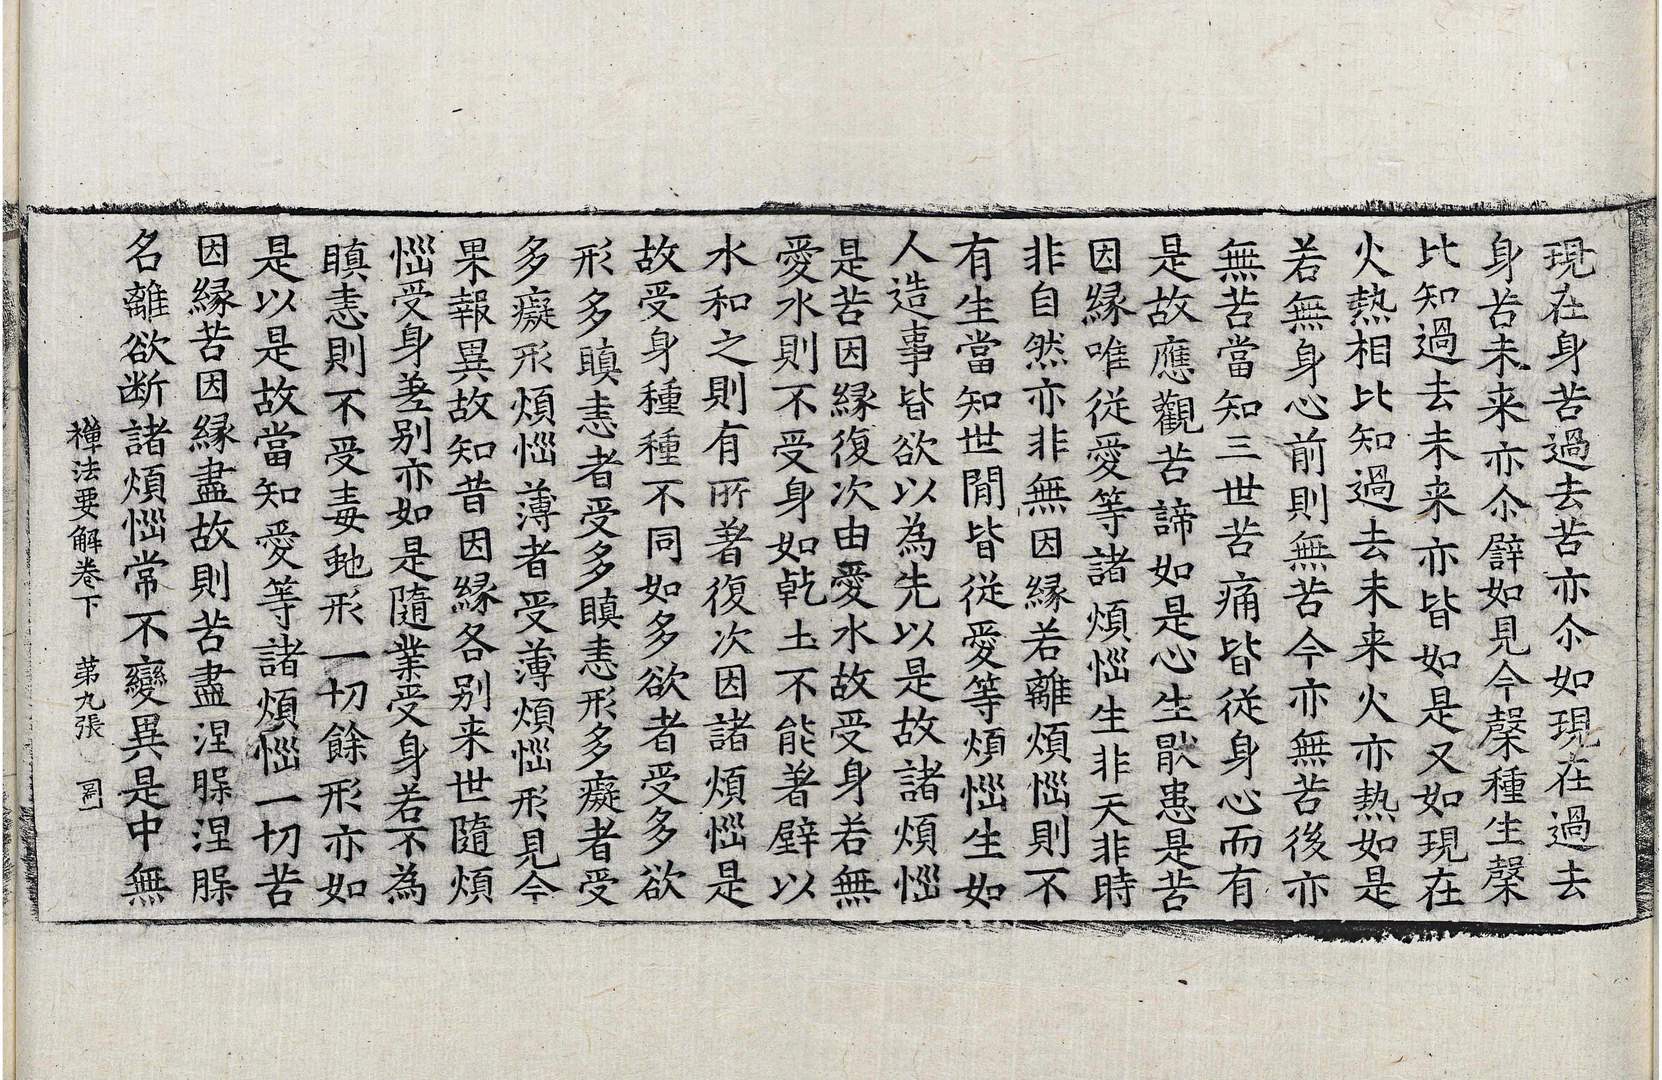 現在身苦過去苦亦尒如現在過去
身苦未来亦尒譬如見今穀種生穀
比知過去未来亦皆如是又如現在
火熱相比知過去未来火亦熱如是
若無身心前則無苦今亦無苦後亦
無苦當知三世苦痛皆從身心而有
是故應觀苦諦如是心生猒患是苦
因緣唯從愛等諸煩惱生非天非時
非自然亦非無因緣若離煩惱則不
有生當知世閒皆從愛等煩惱生如
人造事皆欲以為先以是故諸煩惱
是苦因緣復次由愛水故受身若無
愛水則不受身如乾土不能著壁以
水和之則有所著復次因諸煩惱是
故受身種種不同如多欲者受多欲
形多瞋恚者受多瞋恚形多癡者受
多癡形煩惱薄者受薄煩惱形見今
果報異故知昔因緣各別来世隨煩
惱受身差別亦如是隨業受身若不為
瞋恚則不受毒虵形一切餘形亦如
是以是故當知愛等諸煩惱一切苦
因緣苦因緣盡故則苦盡涅槃涅槃
名離欲断諸煩惱常不變異是中無
禪法要解卷下 第九張 罽